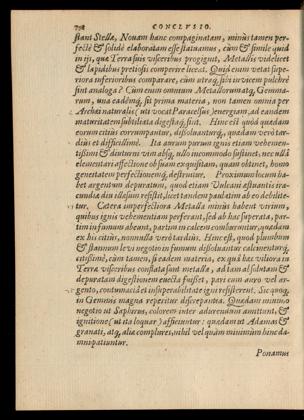 798 CONCLVSIO.
stant Stellæ, Nouam hanc compaginatam, minùs tamen per-
fectè & solidè elaboratam esse statuamus, cùm & simile quid
in ijs, quæ Terra suis visceribus progignit, Metallis videlicet
& lapidibus pretiosis comperire liceat. Quid enim vetat supe-
riora inferioribus comparare, cùm vtraq; sibi invicem pulchrè
sint analoga? Cùm enim omnium Metallorum atq; Gemma-
rum, vna eademq; sit prima materia, non tamen omnia per
Archei naturalis (vt vocat Paracelsus) energiam, ad eandem
maturitatem sublimata digestaq; sunt. Hinc est quòd quædam
eorum citiùs corrumpantur, dissoluanturq;, quædam verò tar-
diùs et difficilimè. Ita aurum purum ignis etiam vehemen-
tissimi & diuturni vim absq; vllo incommodo sustinet, nec vllâ
elementari affectione ob suam exquisitam, quam obtinet, homo-
geneitatem perfectionemq;, destruitur. Proximum locum ha-
bet argentum depuratum, quod etiam Vulcani æstuantis ira-
cundiæ diu illæsum resistit, licet tandem paulatim ab eo debilite-
tur. Cætera imperfectiora Metalla minùs habent virium,
quibus ignis vehementiam perferant, sed ab hac superata, par-
tim in fumum abeunt, partim in calcem comburuntur, quædam
ex his citiùs, nonnulla verò tardiùs. Hinc est, quòd plumbum
& stannum levi negotio in fumum dissoluantur calcinenturq;
citissimè, cùm tamen, si eadem materia, ex quâ hæc viliora in
Terræ visceribus conflata sunt metalla, ad tam absolutam &
depuratam digestionem euecta fuisset, pari cum auro vel ar-
gento, contumaciâ et insuperabilitate igni resisterent. Sic quoq;
in Gemmis magna reperitur discrepantia. Quædam minimo
negotio vt Saphirus, colorem inter adurendum amittunt, &
ignitione (vt ita loquar) afficiuntur: quædam vt Adamas &
granati, atq; aliæ complures, nihil vel quàm minimùm hinc da-
mni patiuntur.
Ponamus